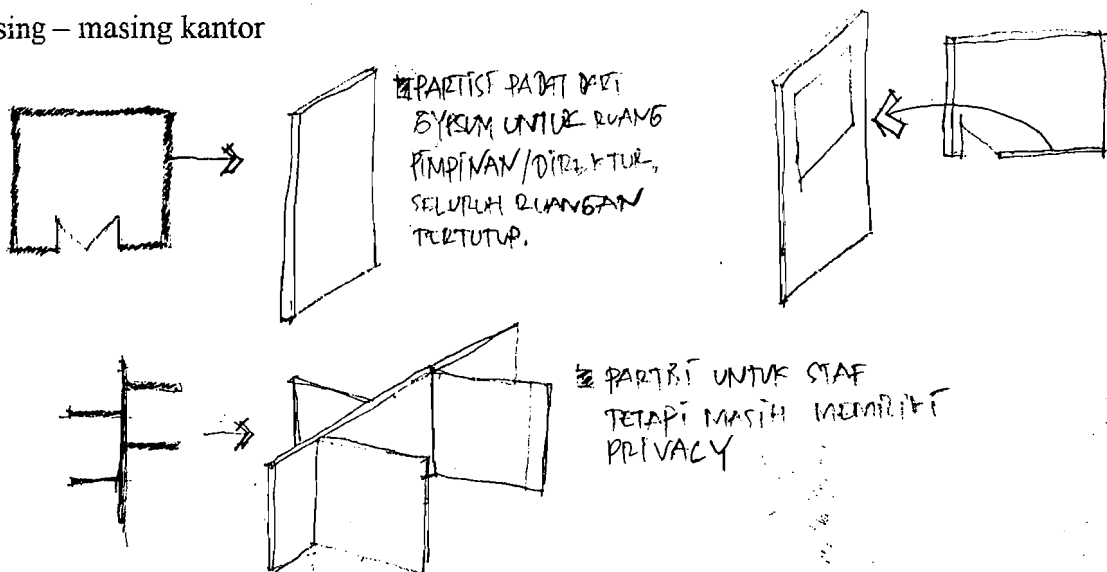 sing – masing kantor
PARTISI PADAT DARI
GYPSUM UNTUK RUANG
PIMPINAN/DIREKTUR,
SELURUH RUANGAN
TERTUTUP.
PARTISI UNTUK STAF
TETAPI MASIH MEMILIKI
PRIVACY